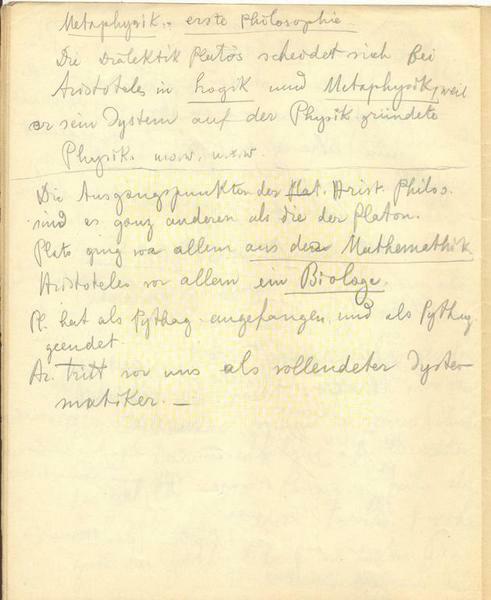 Metaphysik.. erste Philosophie.
Die Dialektik Platos scheidet sich bei
Aristoteles in Logik und Metaphysik, weil
er sein System auf der Physik gründete
Physik. u.s.w. u.s.w.
Die Ausgangspunkten der Plat. Arist. Philos.
sind es ganz anderen als die der Platon.
Plato ging vor allem aus der Mathemathik
Aristoteles vor allem ein Biologe.
Pl. hat als Pythag. angefangen und als Pythag
geendet.
Ar. tritt vor uns als vollendeter Syste-
matiker. —